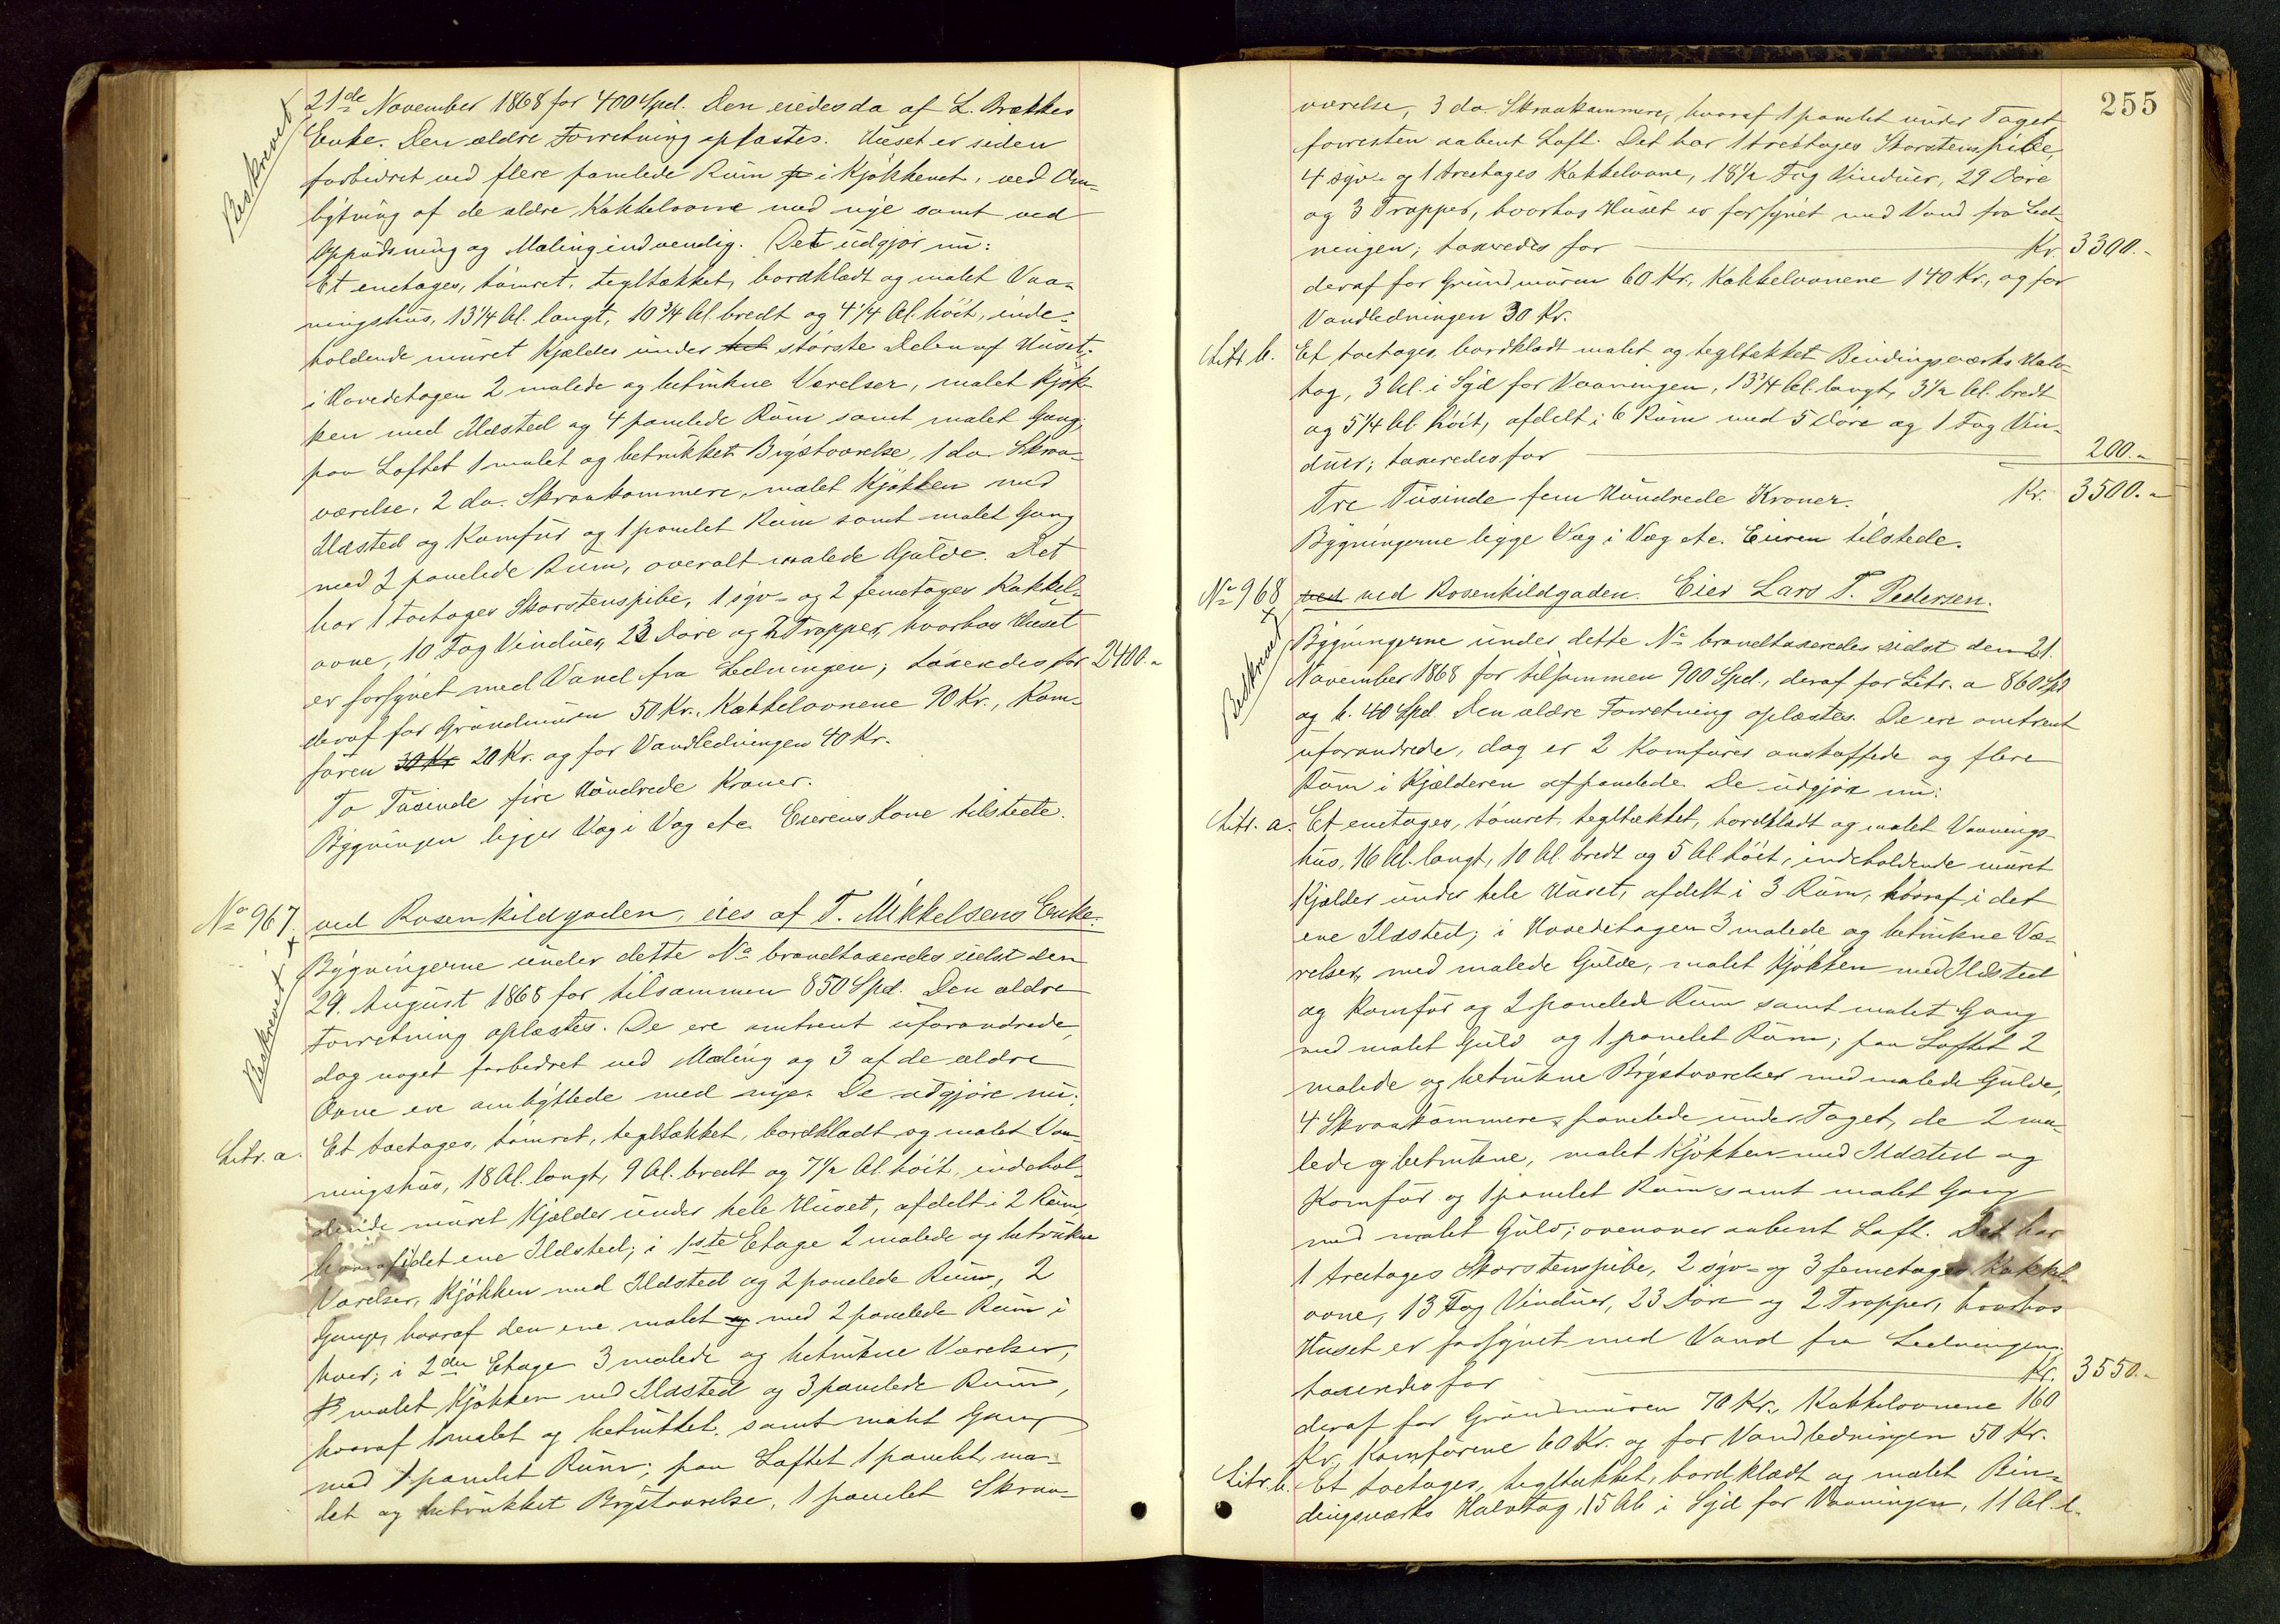 21de November 1868 for 400 Spd. Den eiedes da af L. Brekkes
Beskrevet
Enke. Den ældre Forretning oplæstes. Huset er siden
forbedret ved flere panelede Rum i Kjøkkenet, ved Om-
bytning af de ældre Kakkelovne med nye samt ved
Oppudsning og Maling indvendig. Det udgjør nu:
Et enetages, tømret, tegltækket, bordklædt og malet Vaa-
ningshus, 13 1/4 Al. langt, 10 3/4 Al. bredt og 4 1/4 Al. høit, inde-
holdende muret Kjælder under største Delen af Huset;
i Hovedetagen 2 malede og betrukne Værelser, malet Kjøk-
ken med Ildsted og 4 panelede Rum samt malet Gang;
paa Loftet 1 malet og betrukket Brystværelse, 1 do. Skraa-
værelse, 2 do. Skraakammere, malet Kjøkken med
Ildsted og Komfur og 1 panelet Rum samt malet Gang
med 2 panelede Rum, overalt malede Gulve. Det
har 1 toetages Skorstenspibe, 1 syv- og 2 femetages Kakkel-
ovne, 10 Fag Vinduer, 23 Døre og 2 Trapper, hvorhos Huset
er forsynet med Vand fra Ledningen; taxeredes for 2400.-
deraf for Grundmuren 50 Kr., Kakkelovnene 90 Kr., Kom-
furen 30 Kr 20 Kr. og for Vandledningen 40 Kr.
To Tusinde fire Hundrede Kroner.
Bygningen ligger Væg i Væg etc. Eierens Kone tilstede.
No 967. ved Rosenkildgaden, eies af T. Mikkelsens Enke.
Beskrevet
Bygningerne under dette No brandtaxeredes sidst den
24. August 1868 for tilsammen 850 Spd. Den ældre
Forretning oplæstes. De ere omtrent uforandrede,
dog noget forbedret ved Maling og 3 af de ældre
Ovne ere ombyttede med nye. De udgjøre nu:
Litr. a. Et toetages, tømret, tegltækket, bordklædt og malet Vaa-
ningshus, 18 Al. langt, 9 Al. bredt og 7 1/2 Al. høit, indehol-
dende muret Kjælder under hele Huset, afdelt i 2 Rum,
hvoraf i det ene Ildsted; i 1ste Etage 2 malede og betrukne
Værelser, Kjøkken med Ildsted og 2 panelede Rum, 2
Gange, hvoraf den ene malet og med 2 panelede Rum i
hver; i 2den Etage 3 malede og betrukne Værelser,
malet Kjøkken med Ildsted og 3 panelede Rum,
hvoraf 1 malet og betrukket, samt malet Gang
med 1 panelet Rum; paa Loftet 1 panelet, ma-
let og betrukket Brystværelse, 1 panelet Skraa-
255
værelse, 3 do. Skraakammere, hvoraf 1 panelet under Taget
forresten aabent Loft. Det har 1 treetages Skorstenspibe,
4 syv- og 1 treetages Kakkelovne, 18 1/2 Fag Vinduer, 29 Døre
og 3 Trapper, hvorhos Huset er forsynet med Vand fra Led-
ningen; taxeredes for Kr. 3300.-
deraf for Grundmuren 60 Kr., Kakkelovnene 140 Kr., og for
Vandledningen 30 Kr.
Litr. b. Et toetages, bordklædt malet og tegltækket Bindingsværks Halv-
tag, 3 Al. i Syd for Vaaningen, 13 3/4 Al. langt, 3 1/2 Al. bredt
og 5 1/4 Al. høit, afdelt i 6 Rum med 5 Døre og 1 Fag Vin-
duer; taxeredes for 200.-
Tre Tusinde fem Hundrede Kroner. Kr. 3500.-
Bygningerne ligge Væg i Væg etc. Eieren tilstede.
No 968 ved ved Rosenkildgaden. Eier Lars T. Pedersen.
Beskrevet
Bygningerne under dette No brandtaxeredes sidst den 21.
November 1868 for tilsammen 900 Spd., deraf for Litr. a 860 Spd
og b. 40 Spd. Den ældre Forretning oplæstes. De ere omtrent
uforandrede, dog er 2 Komfurer anskaffede og flere
Rum i Kjælderen afpanelede. De udgjør nu:
Litr. a. Et enetages, tømret, tegltækket, bordklædt og malet Vaanings-
hus, 16 Al. langt, 10 Al. bredt og 5 Al. høit, indeholdende muret
Kjælder under hele Huset, afdelt i 3 Rum, hvoraf i det
ene Ildsted; i Hovedetagen 3 malede og betrukne Væ-
relser, med malede Gulve, malet Kjøkken med Ildsted
og Komfur og 2 panelede Rum samt malet Gang
med malet Gulv og 1 panelet Rum; paa Loftet 2
malede og betrukne Brystværelser med malede Gulve,
4 Skraakammere, panelede under Taget, de 2 ma-
lede og betrukne, malet Kjøkken med Ildsted og
Komfur og 1 panelet Rum samt malet Gang
med malet Gulv; ovenover aabent Loft. Det har
1 treetages Skorstenspibe, 2 syv- og 3 femetages Kakkel-
ovne, 13 Fag Vinduer, 23 Døre og 2 Trapper, hvorhos
Huset er forsynet med Vand fra Ledningen;
taxeredes for Kr. 3550.-
deraf for Grundmuren 70 Kr., Kakkelovnene 160
Kr., Komfurene 60 Kr. og for Vandledningen 50 Kr.
Litr. b. Et toetages, tegltækket, bordklædt og malet Bin-
dingsværks Halvtag, 15 Al. i Syd for Vaaningen, 11 Al. l.